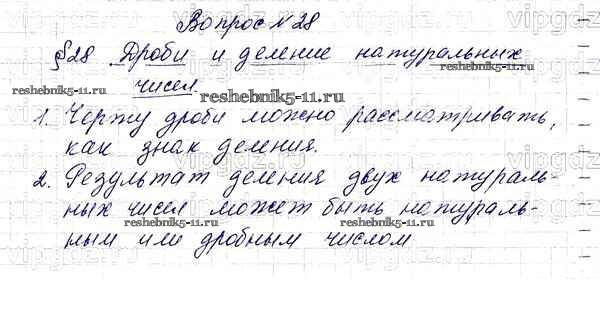 Вопрос №28
§28 Дроби и деление натуральных
чисел
1. Черту дроби можно рассматривать,
как знак деления.
2. Результат деления двух натураль-
ных чисел может быть натураль-
ным или дробным числом
reshebnik5-11.ru
reshebnik5-11.ru
reshebnik5-11.ru
reshebnik5-11.ru
reshebnik5-11.ru
reshebnik5-11.ru
vipgdz.ru